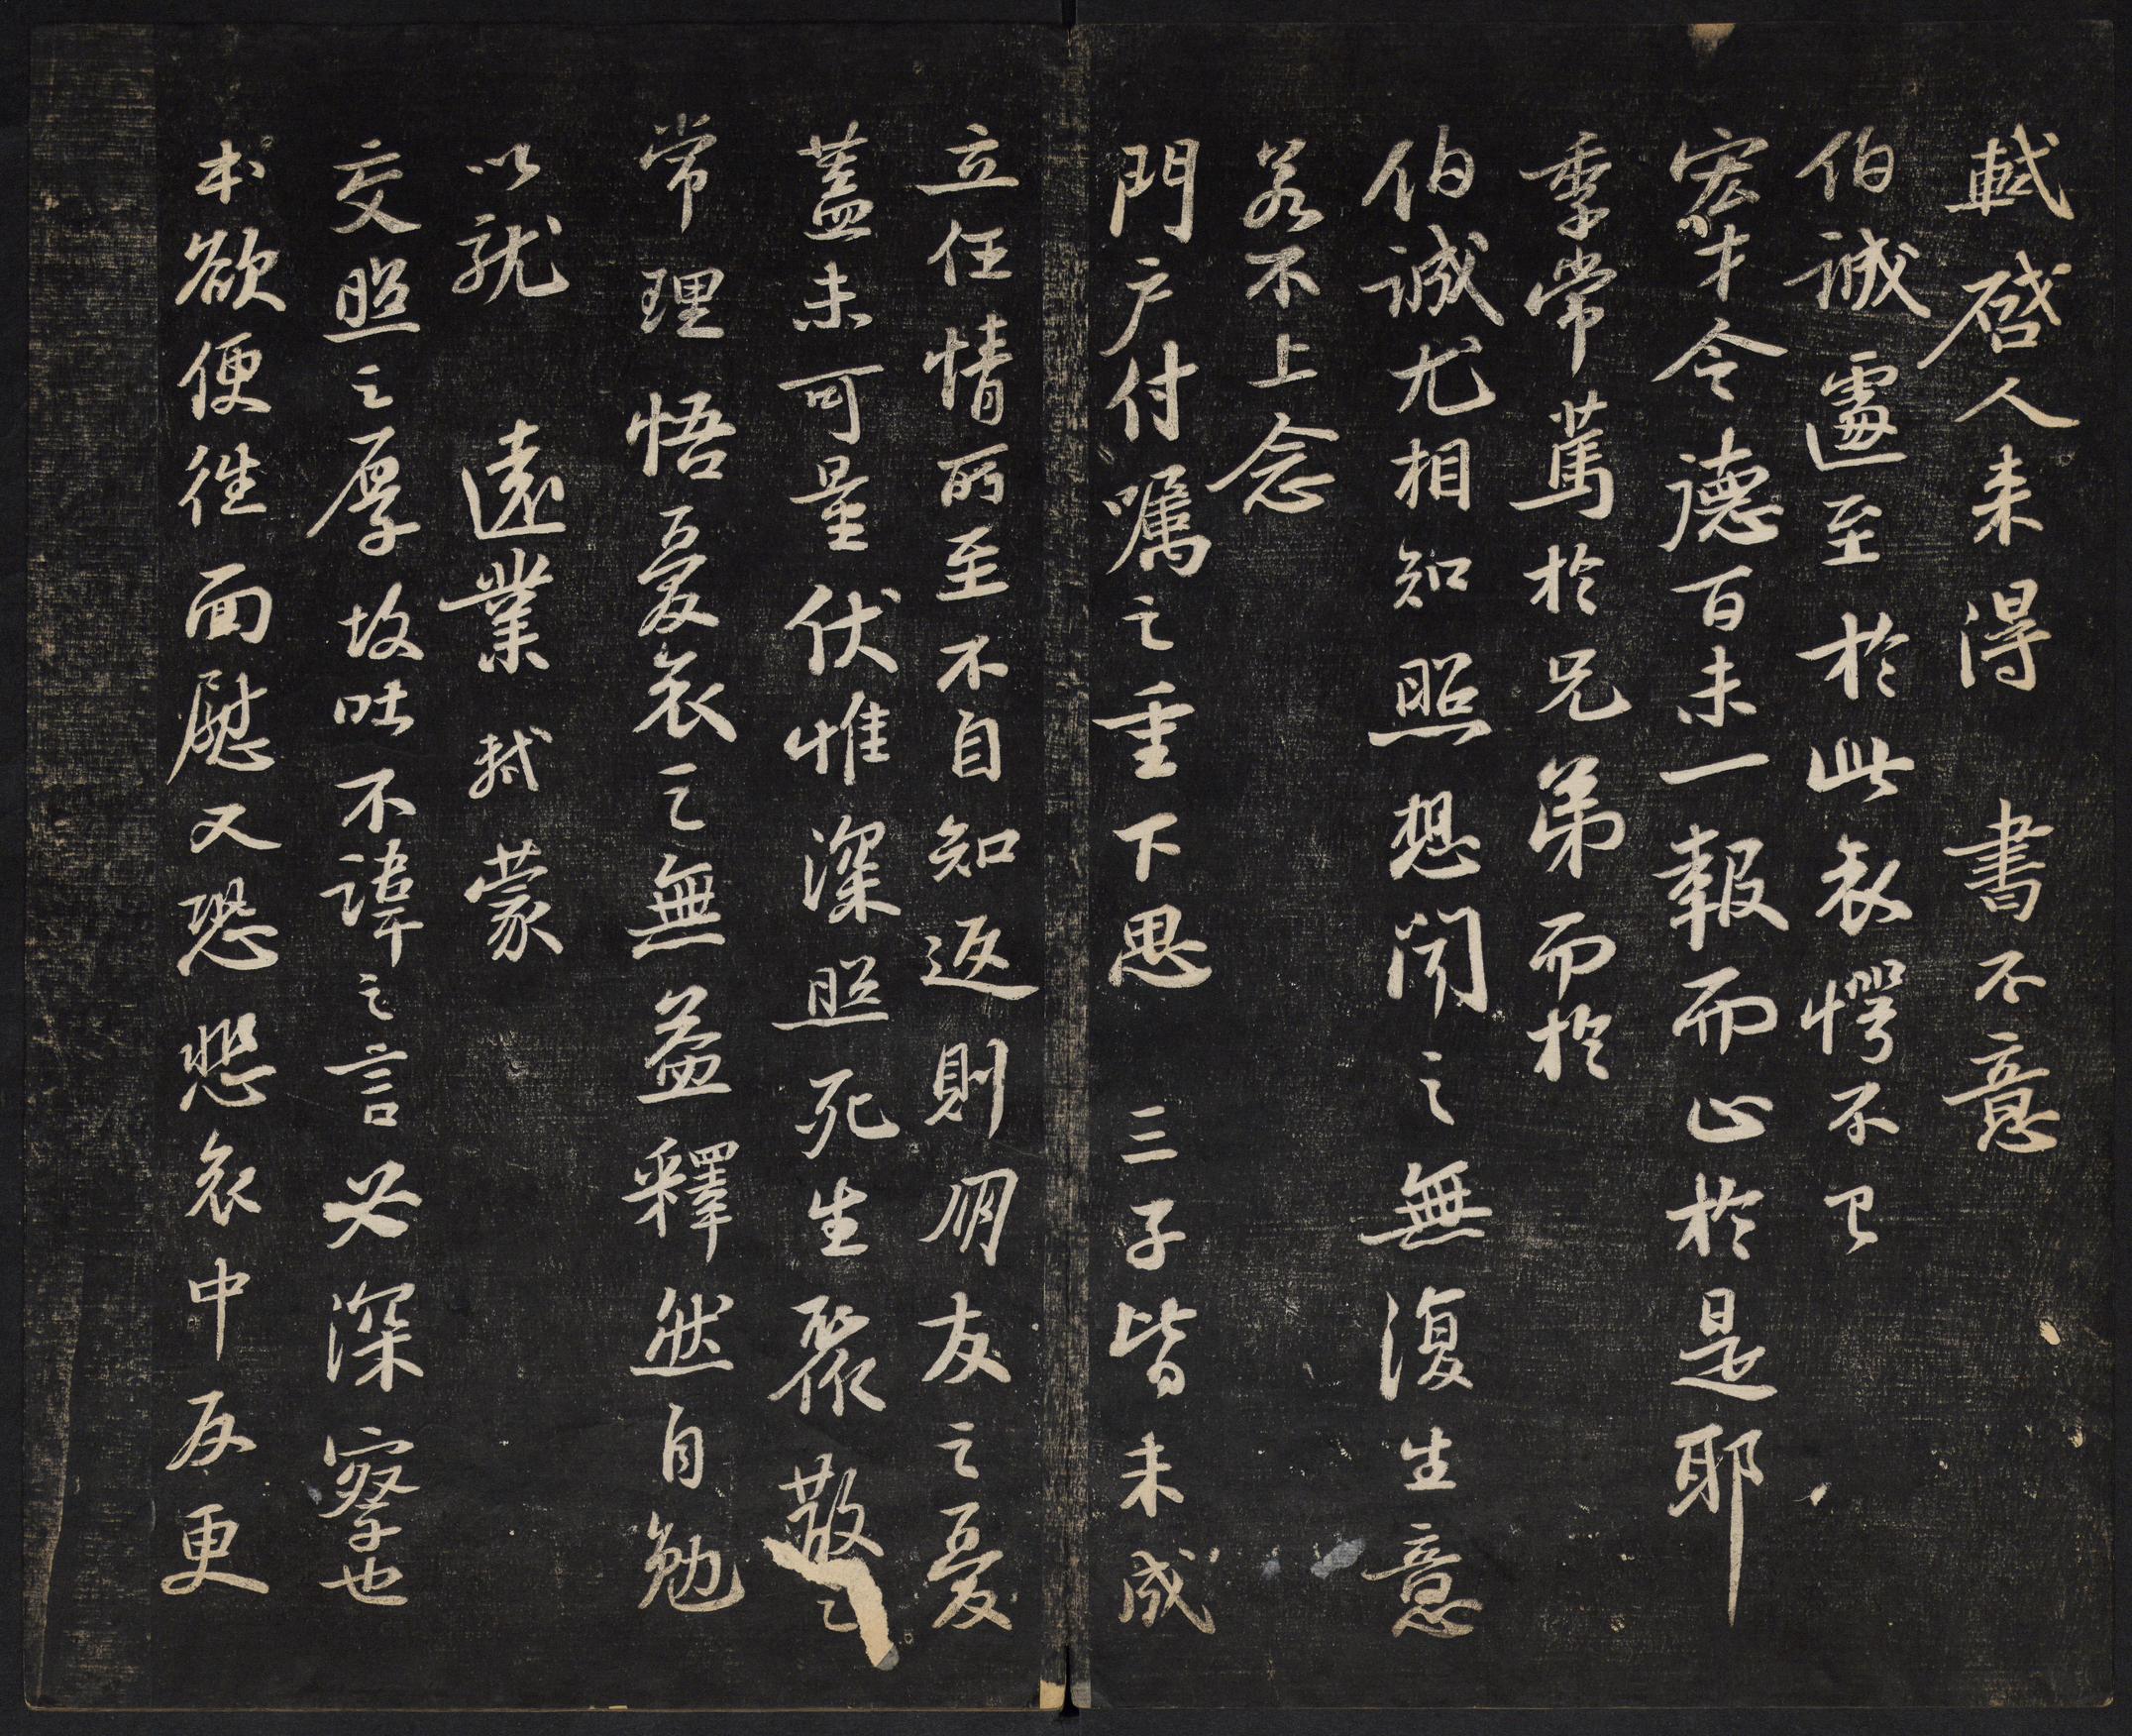 軾啓人來得 書不意
伯誠遽至於此哀愕不已
宏才令德百未一報而止於是耶
季常篤於兄弟而於
伯誠尤相知照想聞之無復生意
若不上念
門户付囑之重下思 三子皆未成
立任情所至不自知返則朋友之憂
蓋未可量伏惟深照死生聚散之
常理悟憂哀之無益釋然自勉
以就 遠業軾蒙
交照之厚故吐不諱之言必深察也
本欲便往面慰又恐悲哀中反更